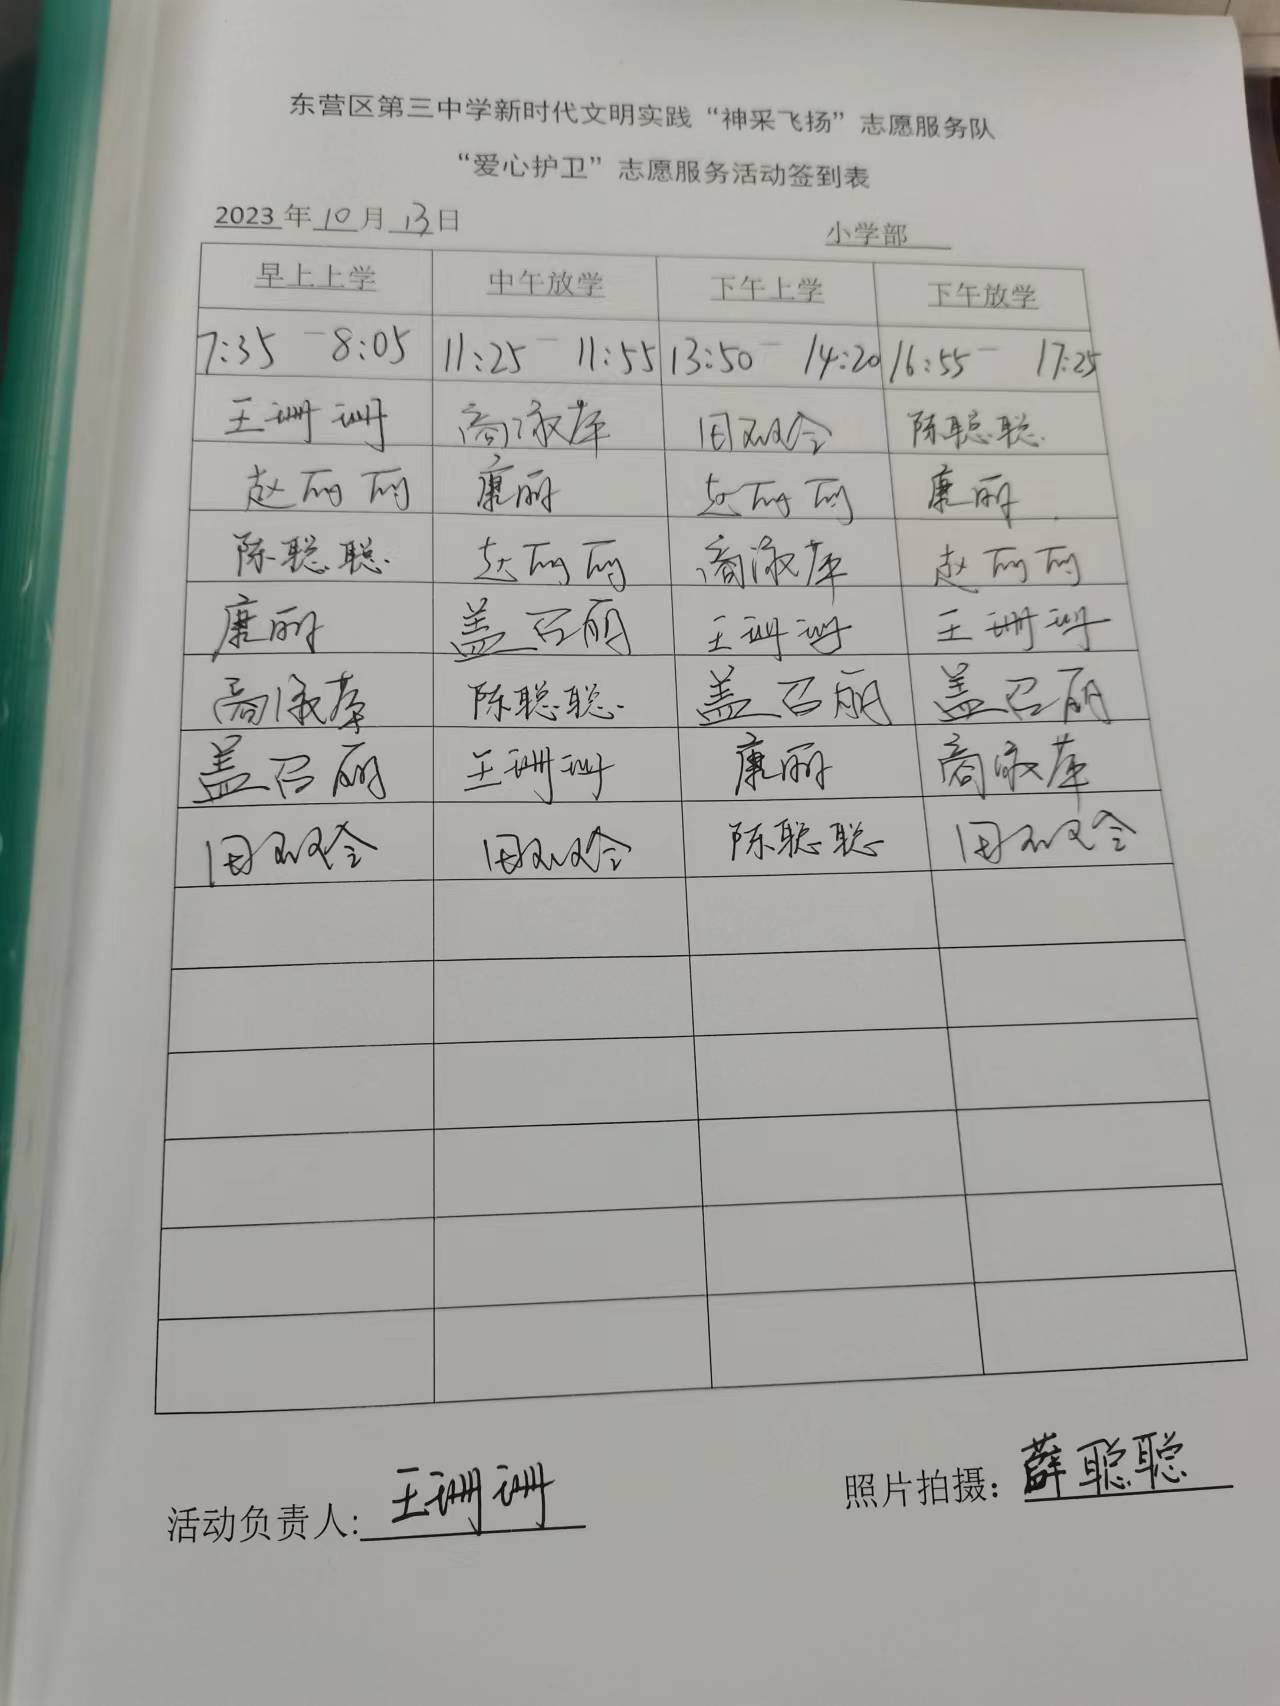 东营区第三中学新时代文明实践“神采飞扬”志愿服务队
“爱心护卫”志愿服务活动签到表
2023年10月13日 小学部
早上上学 中午放学 下午上学 下午放学
7:35-8:05 11:25-11:55 13:50-14:20 16:55-17:25
王珊珊 商淑萍 田双令 陈聪聪
赵丽丽 康丽 赵丽丽 康丽
陈聪聪 赵丽丽 商淑萍 赵丽丽
康丽 盖召丽 王珊珊 王珊珊
商淑萍 陈聪聪 盖召丽 盖召丽
盖召丽 王珊珊 康丽 商淑萍
田双令 田双令 陈聪聪 田双令
活动负责人:王珊珊 照片拍摄:薛聪聪